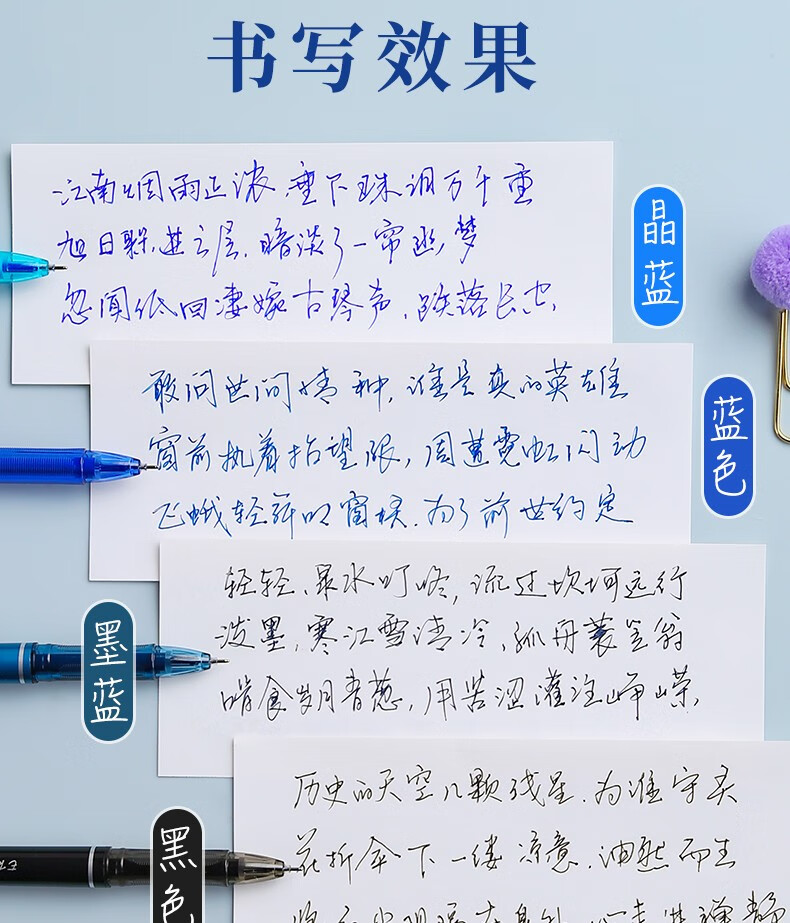 书写效果
江南烟雨正浓,垂下珠泪万千重
旭日躲进云层,暗淡了一帘幽梦
忽闻低回凄婉古琴声,跌落长空,
晶蓝
敢问世间情种,谁是真的英雄
窗前执着抬望眼,周遭霓虹闪动
飞蛾轻弄的窗棂,为了前世约定
蓝色
轻轻、泉水叮咚,流过坎坷远行
泼墨,寒江雪清冷,孤舟蓑笠翁
啃食岁月青葱,用苦涩灌注峥嵘,
墨蓝
历史的天空几颗残星,为谁守灵
花折伞下一缕凉意,油然而生
黑色